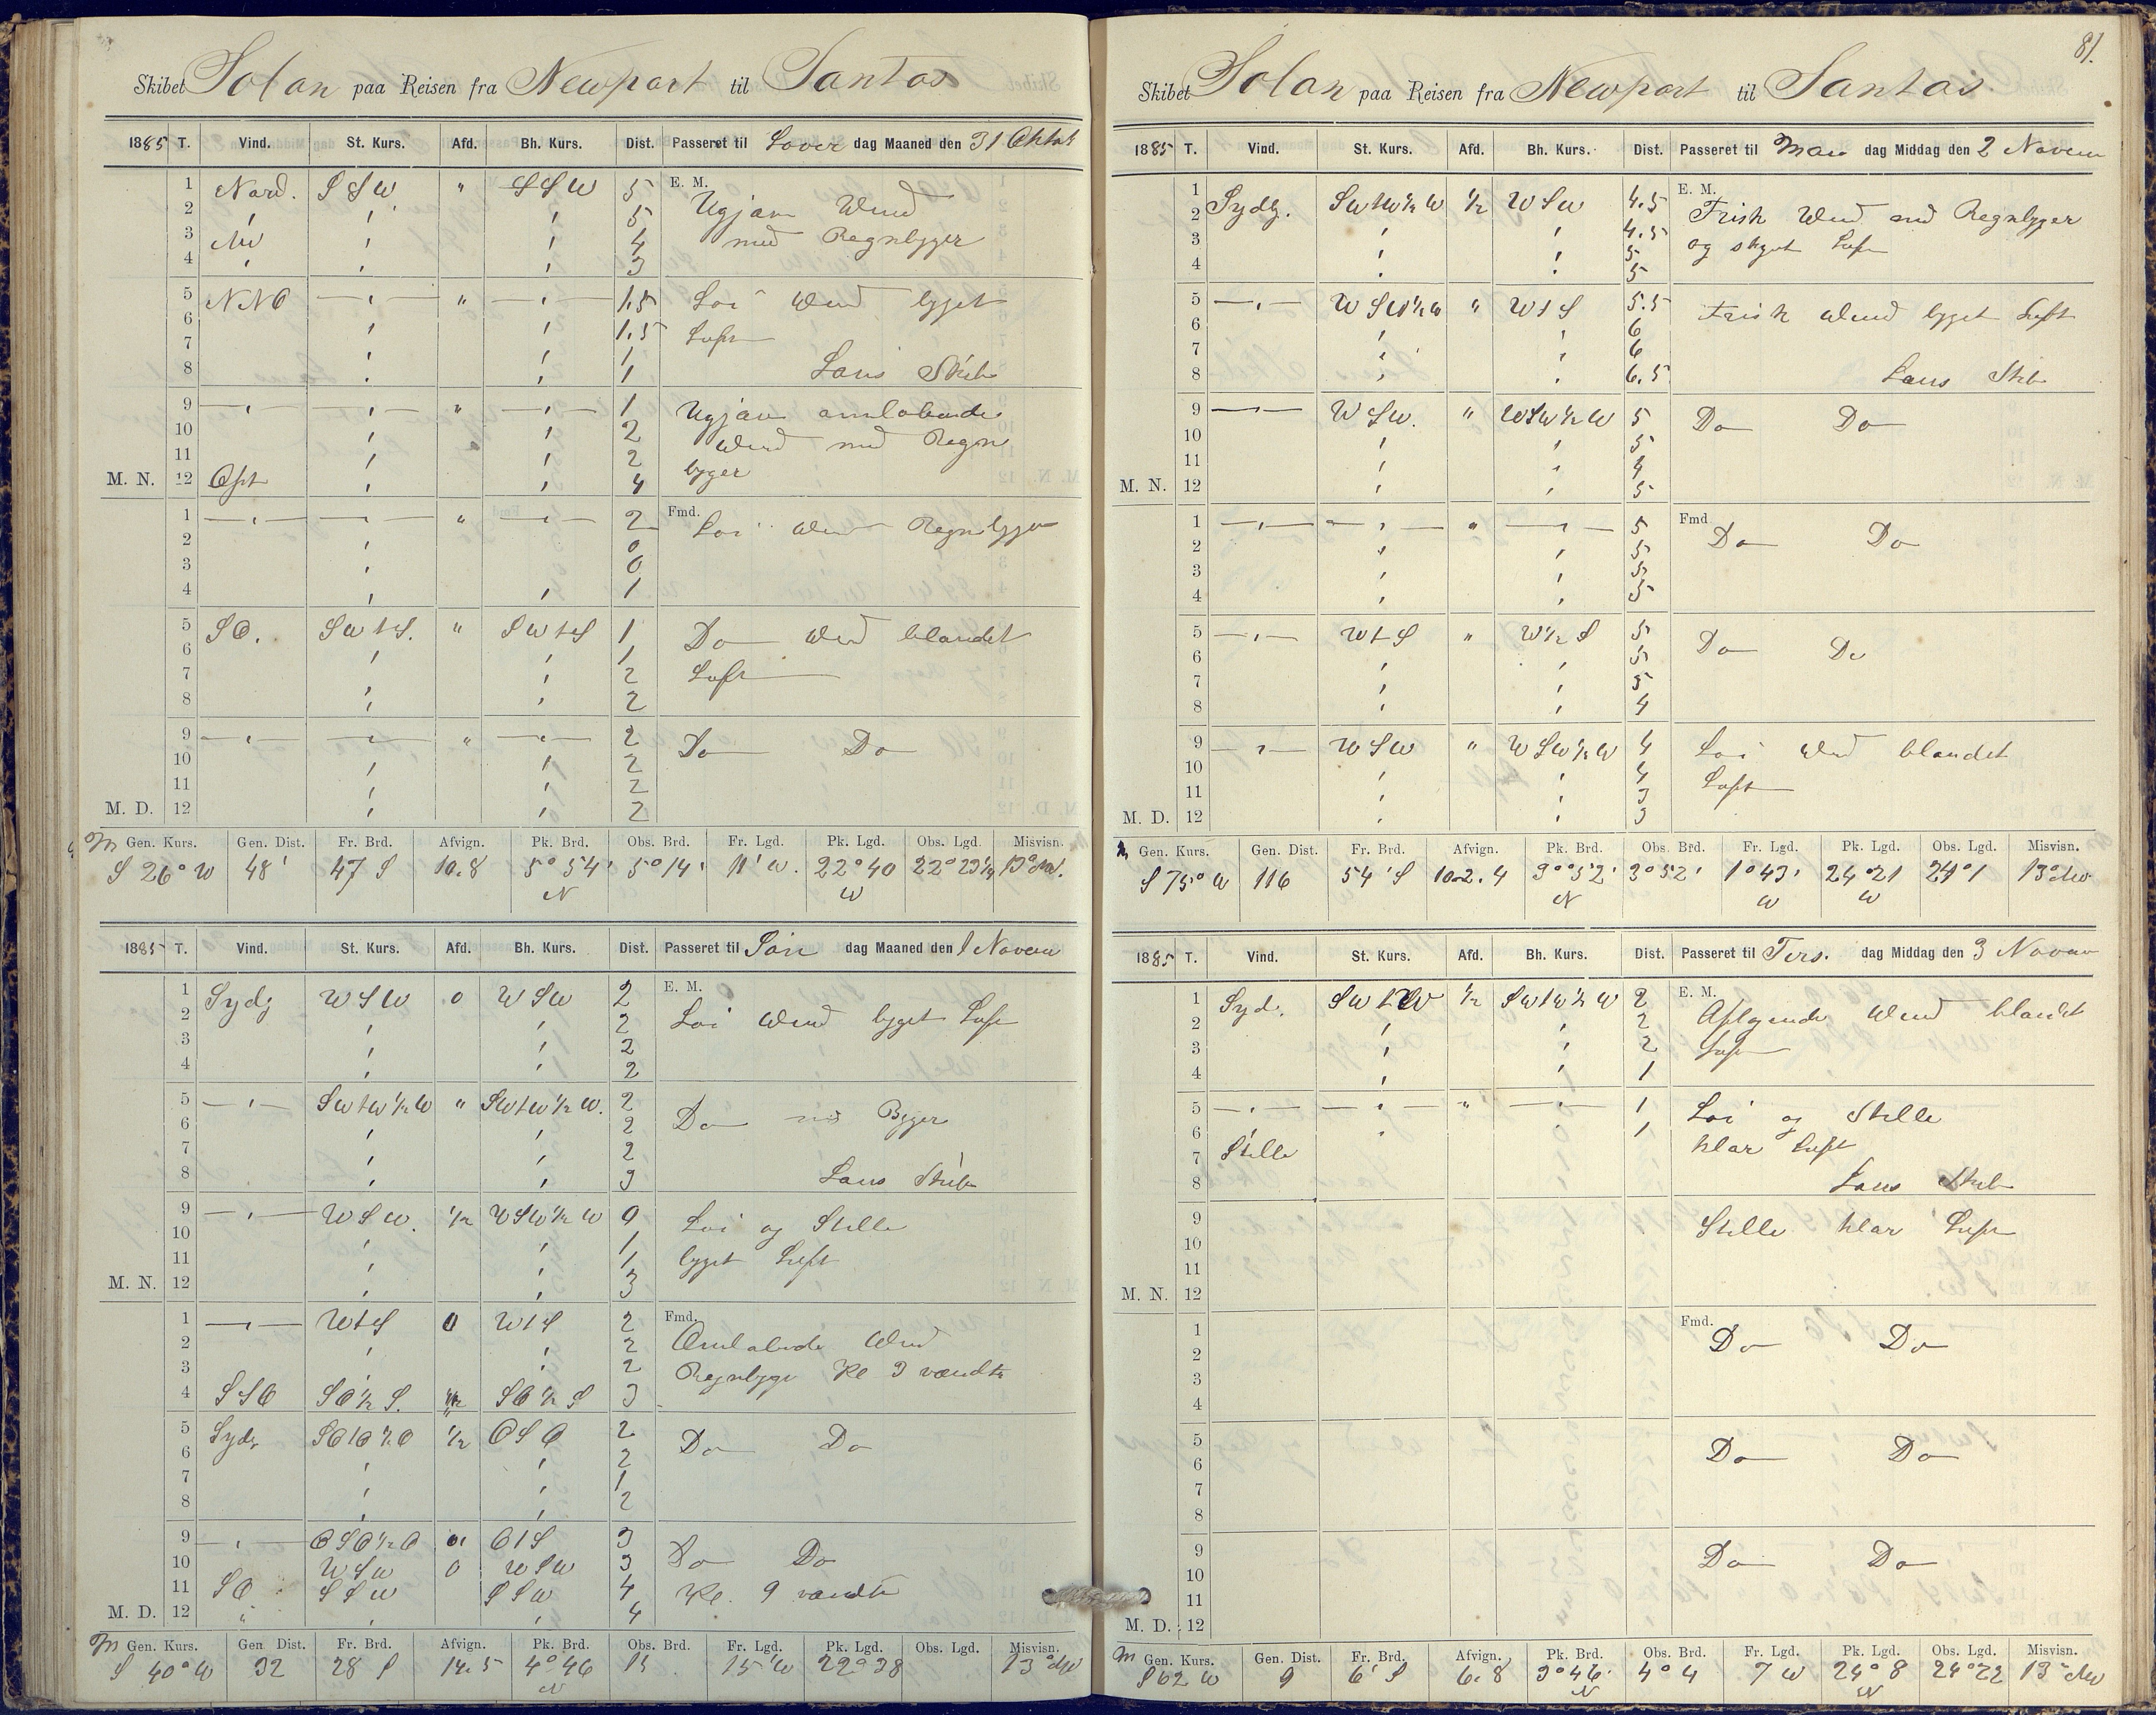 Skibet Solon paa Reisen fra Newport til Santos
1885 T. Vind. St. Kurs. Afd. Bh. Kurs. Dist. Passeret til Lover dag Maaned den 31 Oktob
1 Nord. S S W " S S W 5 E. M.
2 5 Ugjævn Wind
3 NW 4 med Regnbyger
4 3
5 NNO " 1.5 Løi Wind byget
6 1.5 Luft
7 1
8 1 Lens Skib
9 " 1 Ugjævn omløbende
10 2 Wind med Regn
11 2 byger
M. N. 12 Ost 4
1 " 2 Fmd. Løi Wind Regnbyger
2 0
3 0
4 1
5 SO. SWtS. " SWtS 1 Do Wind blandet
6 1
7 2 Luft
8 2
9 " 2 Do Do
10 2
11 2
M. D. 12 2
Gen. Kurs. Gen. Dist. Fr. Brd. Afvign. Pk. Brd. Obs. Brd. Fr. Lgd. Pk. Lgd. Obs. Lgd. Misvisn.
S 26° W 48' 47 S 10.8 5° 54' N 5° 14' 11' W. 22°40 W 22° 23 1/4 13° NW.
1885 T. Vind. St. Kurs. Afd. Bh. Kurs. Dist. Passeret til Søn dag Maaned den 1 Novem
1 Sydg WSW 0 WSW 2 E. M.
2 2 Løi Wind byget Luft
3 2
4 2
5 SWtW 1/2 W " SWtW 1/2 W. 2
6 2 Do med Byger
7 2
8 3 Lens Skib
9 WSW. 1/2 WSW 1/2 W 0 Løi og Stille
10 1
11 1 byget Luft
M. N. 12 3
1 WtS 0 WtS 2 Fmd.
2 2 Omløbende Wind
3 2 Regnbyge Kl 3 vendte
4 SSO SO 1/2 S. 1/2 SO 1/2 S 3
5 Sydg SOtO 1/2 O 1/2 OSO 2
6 2 Do Do
7 1
8 2
9 OSO 1/2 O 0 OtS 3
10 WSW 0 WSW 3 Do Do
11 SO SSW SSW 4 Kl. 9 vendte
M. D. 12 4
Gen. Kurs. Gen Dist. Fr. Brd. Afvign. Pk. Brd. Obs. Brd. Fr. Lgd. Pk. Lgd. Obs. Lgd. Misvisn.
S 40° W 32 28 S 14.5 4° 46 N 15 15' W 22° 38 13° NW
81.
Skibet Solon paa Reisen fra Newport til Santos.
1885 T. Vind. St. Kurs. Afd. Bh. Kurs. Dist. Passeret til Man dag Middag den 2 Novem
1 Sydg. SWtW 1/2 W 1/2 WSW 4.5 E. M.
2 4.5 Frisk Wind med Regnbyger
3 5 og skyet Luft
4 5
5 WSW 1/2 W " WtS 5.5 Frisk Wind byget Luft
6 6
7 6
8 6.5 Lens Skib
9 WSW. " WSW 1/2 W 5 Do Do
10 5
11 4
M. N. 12 5
1 " 5 Fmd Do Do
2 5
3 5
4 5
5 WtS " W 1/2 S 5 Do Do
6 5
7 5
8 4
9 WSW " WSW 1/2 W 4 Løi Wind blandet
10 4
11 3 Luft
M. D. 12 3
Gen. Kurs. Gen. Dist. Fr. Brd. Afvign. Pk. Brd. Obs. Brd. Fr. Lgd. Pk. Lgd. Obs. Lgd. Misvisn.
S 75° W 116 54' S 102.4 3° 52' N 3° 52' 1° 43' W 24°21 W 24°1 13° NW
1885 T. Vind. St. Kurs. Afd. Bh. Kurs. Dist. Passeret til Tirs. dag Middag den 3 Novem
1 Syd. SWtW 1/2 SWtW 1/2 W 2 E. M.
2 2 Afløiende Wind blandet
3 2 Luft
4 1
5 " 1 Løi og Stille
6 1
7 Stille klar Luft
8 Lens Skib
9 Stille klar Luft
10
11
M. N. 12
1 Fmd. Do Do
2
3
4
5 Do Do
6
7
8
9 Do Do
10
11
M. D. 12
Gen. Kurs. Gen. Dist. Fr. Brd. Afvign. Pk. Brd. Obs. Brd. Fr. Lgd. Pk. Lgd. Obs. Lgd. Misvisn.
S 62 W 9 6' S 6.8 3°46' N 4° 4 7 W 24° 8 W 24°22 13° NW